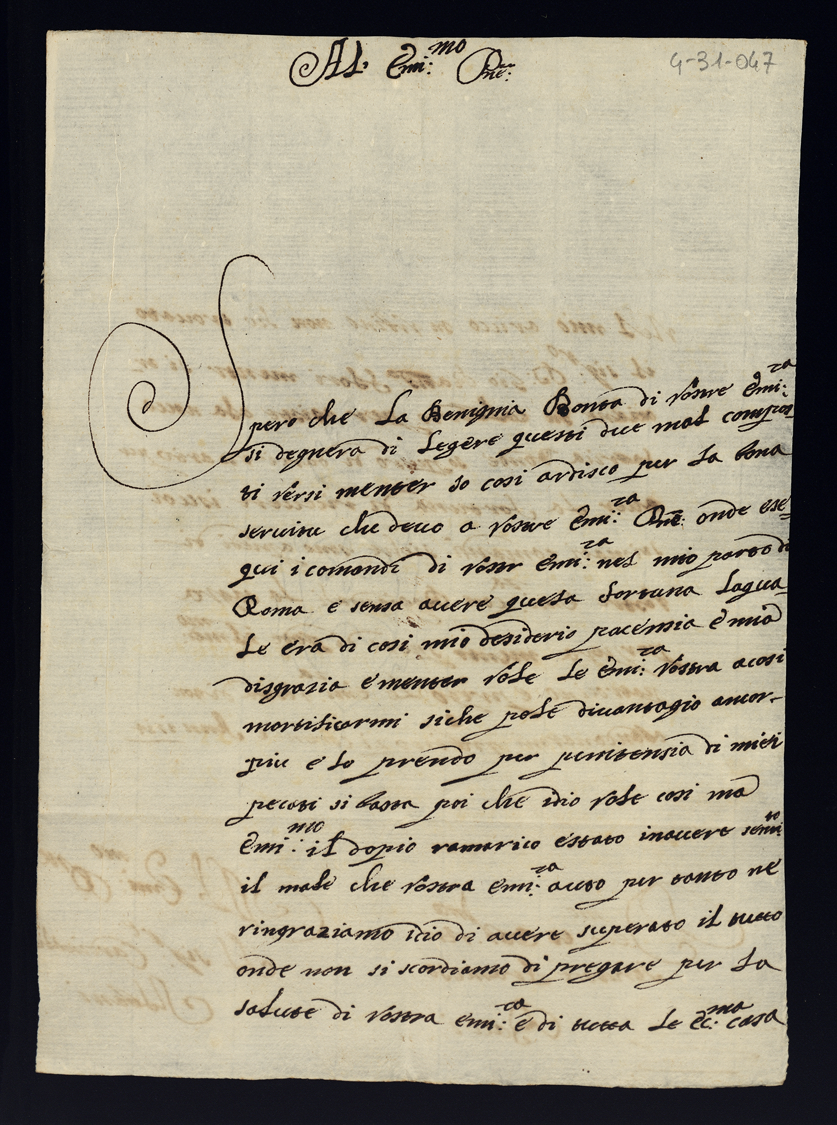 Al Emi:mo Pne:
4-31-047
Spero che La Benignia Bonta di vostre Emi:za
si degnera di Legere questi due mal compos
ti versi menter io cosi ardisco per la bona
servitu che devo a vostre Emi:za Pne: onde ese=
qui i comandi di vostr Emi:za nel mio parto di
Roma e sensa avere questa fortuna Laqua=
Le era di cosi mio desiderio pacemsia e mia
disgrazia e menter vole Le Emi:za vostra acosi
mortificarmi siche pole dicantagio ancor=
piu e lo prendo per penitensia di miei
pecati si basta poi che idio vole cosi ma
Emi:mo il dopio ramarico estato inavere senti to
il male che vostra emi:za auto per tanto ne
ringraziamo idio di avere superato il tutto
onde non si scordiamo di pregare per La
salute di vostra emi:za e di tutta Le ec:ma casa